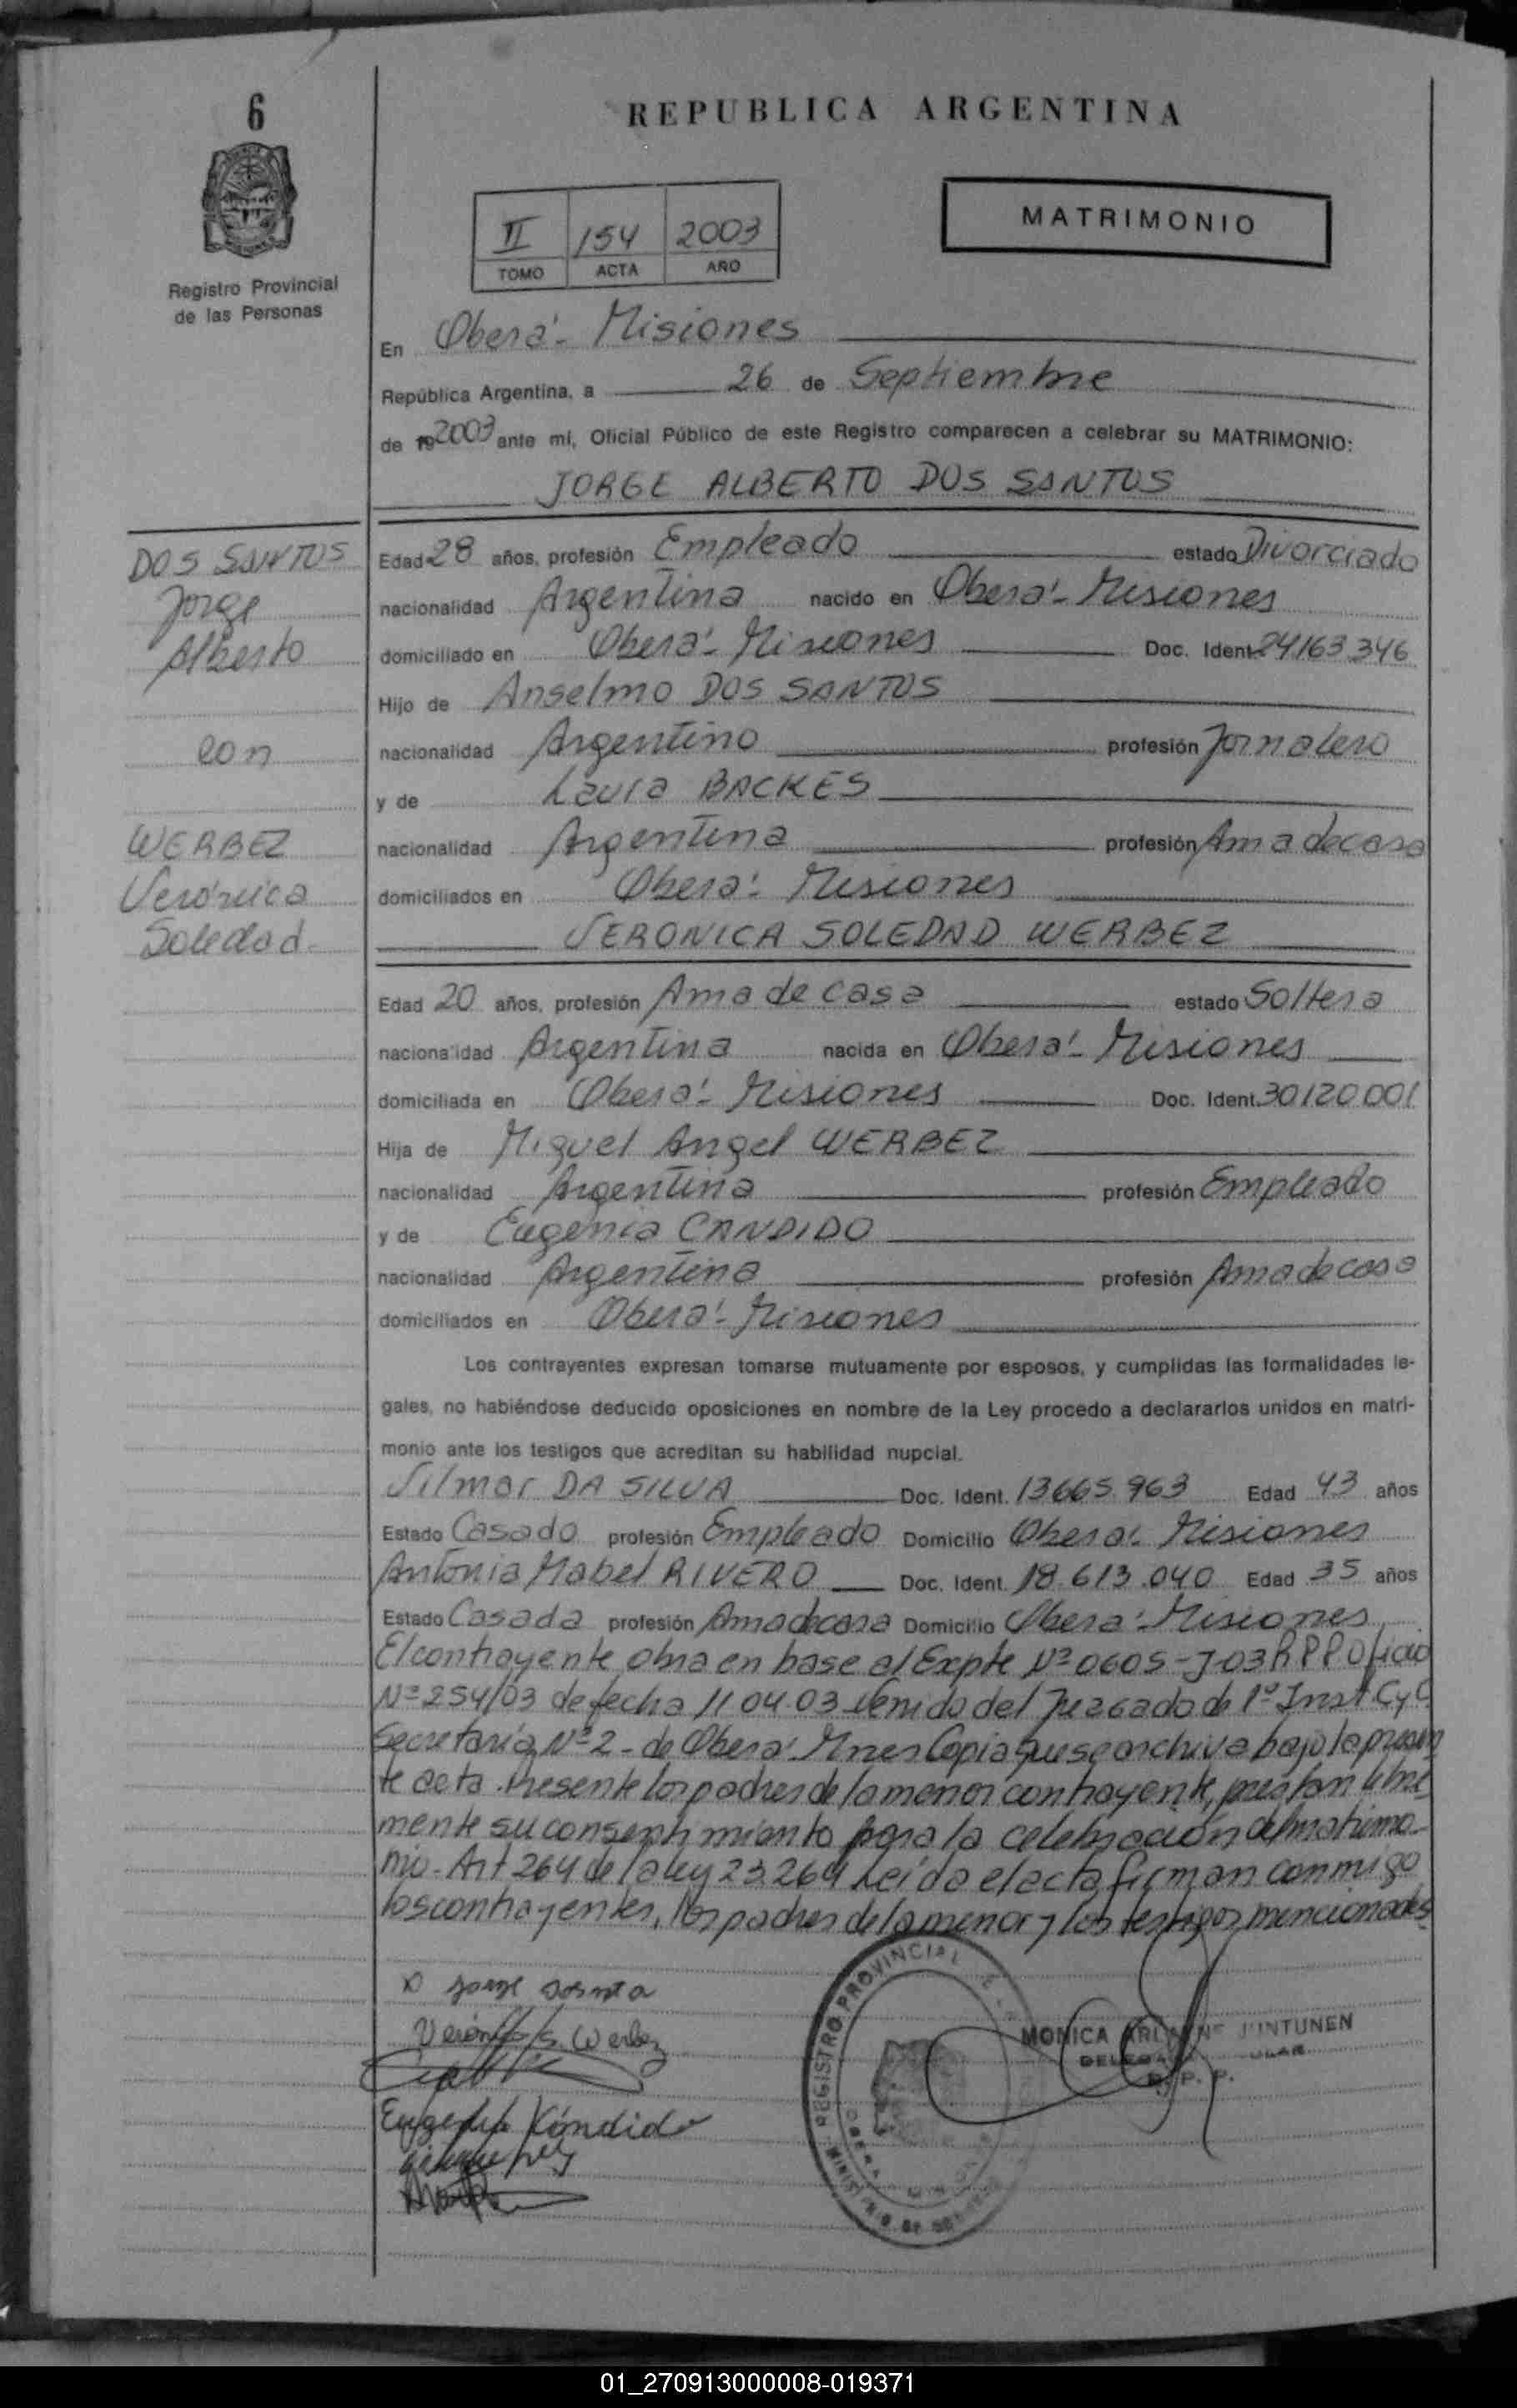 6
REPUBLICA ARGENTINA
MATRIMONIO
II 154 2003
TOMO ACTA AÑO
Registro Provincial
de las Personas
En Oberá - Misiones
República Argentina, a 26 de Septiembre
de 19 2003 ante mí, Oficial Público de este Registro comparecen a celebrar su MATRIMONIO:
JORGE ALBERTO DOS SANTOS
DOS SANTOS
Jorge
Alberto
con
WERBEZ
Verónica
Soledad
Edad 28 años, profesión Empleado estado Divorciado
nacionalidad Argentina nacido en Oberá - Misiones
domiciliado en Oberá - Misiones Doc. Ident. 24163346
Hijo de Anselmo DOS SANTOS
nacionalidad Argentino profesión Jornalero
y de Laura BACKES
nacionalidad Argentina profesión Ama de casa
domiciliados en Oberá - Misiones
VERONICA SOLEDAD WERBEZ
Edad 20 años, profesión Ama de casa estado Soltera
nacionalidad Argentina nacida en Oberá - Misiones
domiciliada en Oberá - Misiones Doc. Ident. 30120001
Hija de Miguel Angel WERBEZ
nacionalidad Argentina profesión Empleado
y de Eugenia CANDIDO
nacionalidad Argentina profesión Ama de casa
domiciliados en Oberá - Misiones
Los contrayentes expresan tomarse mutuamente por esposos, y cumplidas las formalidades le-
gales, no habiéndose deducido oposiciones en nombre de la Ley procedo a declararlos unidos en matri-
monio ante los testigos que acreditan su habilidad nupcial.
Vilmar DA SILVA Doc. Ident. 13665.963 Edad 43 años
Estado Casado profesión Empleado Domicilio Oberá - Misiones
Antonia Mabel RIVERO Doc. Ident. 18.613.040 Edad 35 años
Estado Casada profesión Ama de casa Domicilio Oberá - Misiones
El contrayente obra en base al Expte Nº 0605-J-03 RPP Oficio
Nº 254/03 de fecha 11.04.03 venido del Juzgado de 1º Inst. C y C.
Secretaría Nº 2 - de Oberá Mnes Copia que se archiva bajo la presen
te acta. Presente los padres de la menor contrayente, prestan libre
mente su consentimiento para la celebración del matrimo-
nio - Art 264 de la ley 23.264 Leída el acta firman conmigo
los contrayentes, los padres de la menor y los testigos mencionados
Verónica S. Werbez
Eugenia Kándido
REGISTRO PROVINCIAL
MONICA JUNTUNEN
R. P. P.
01_270913000008-019371